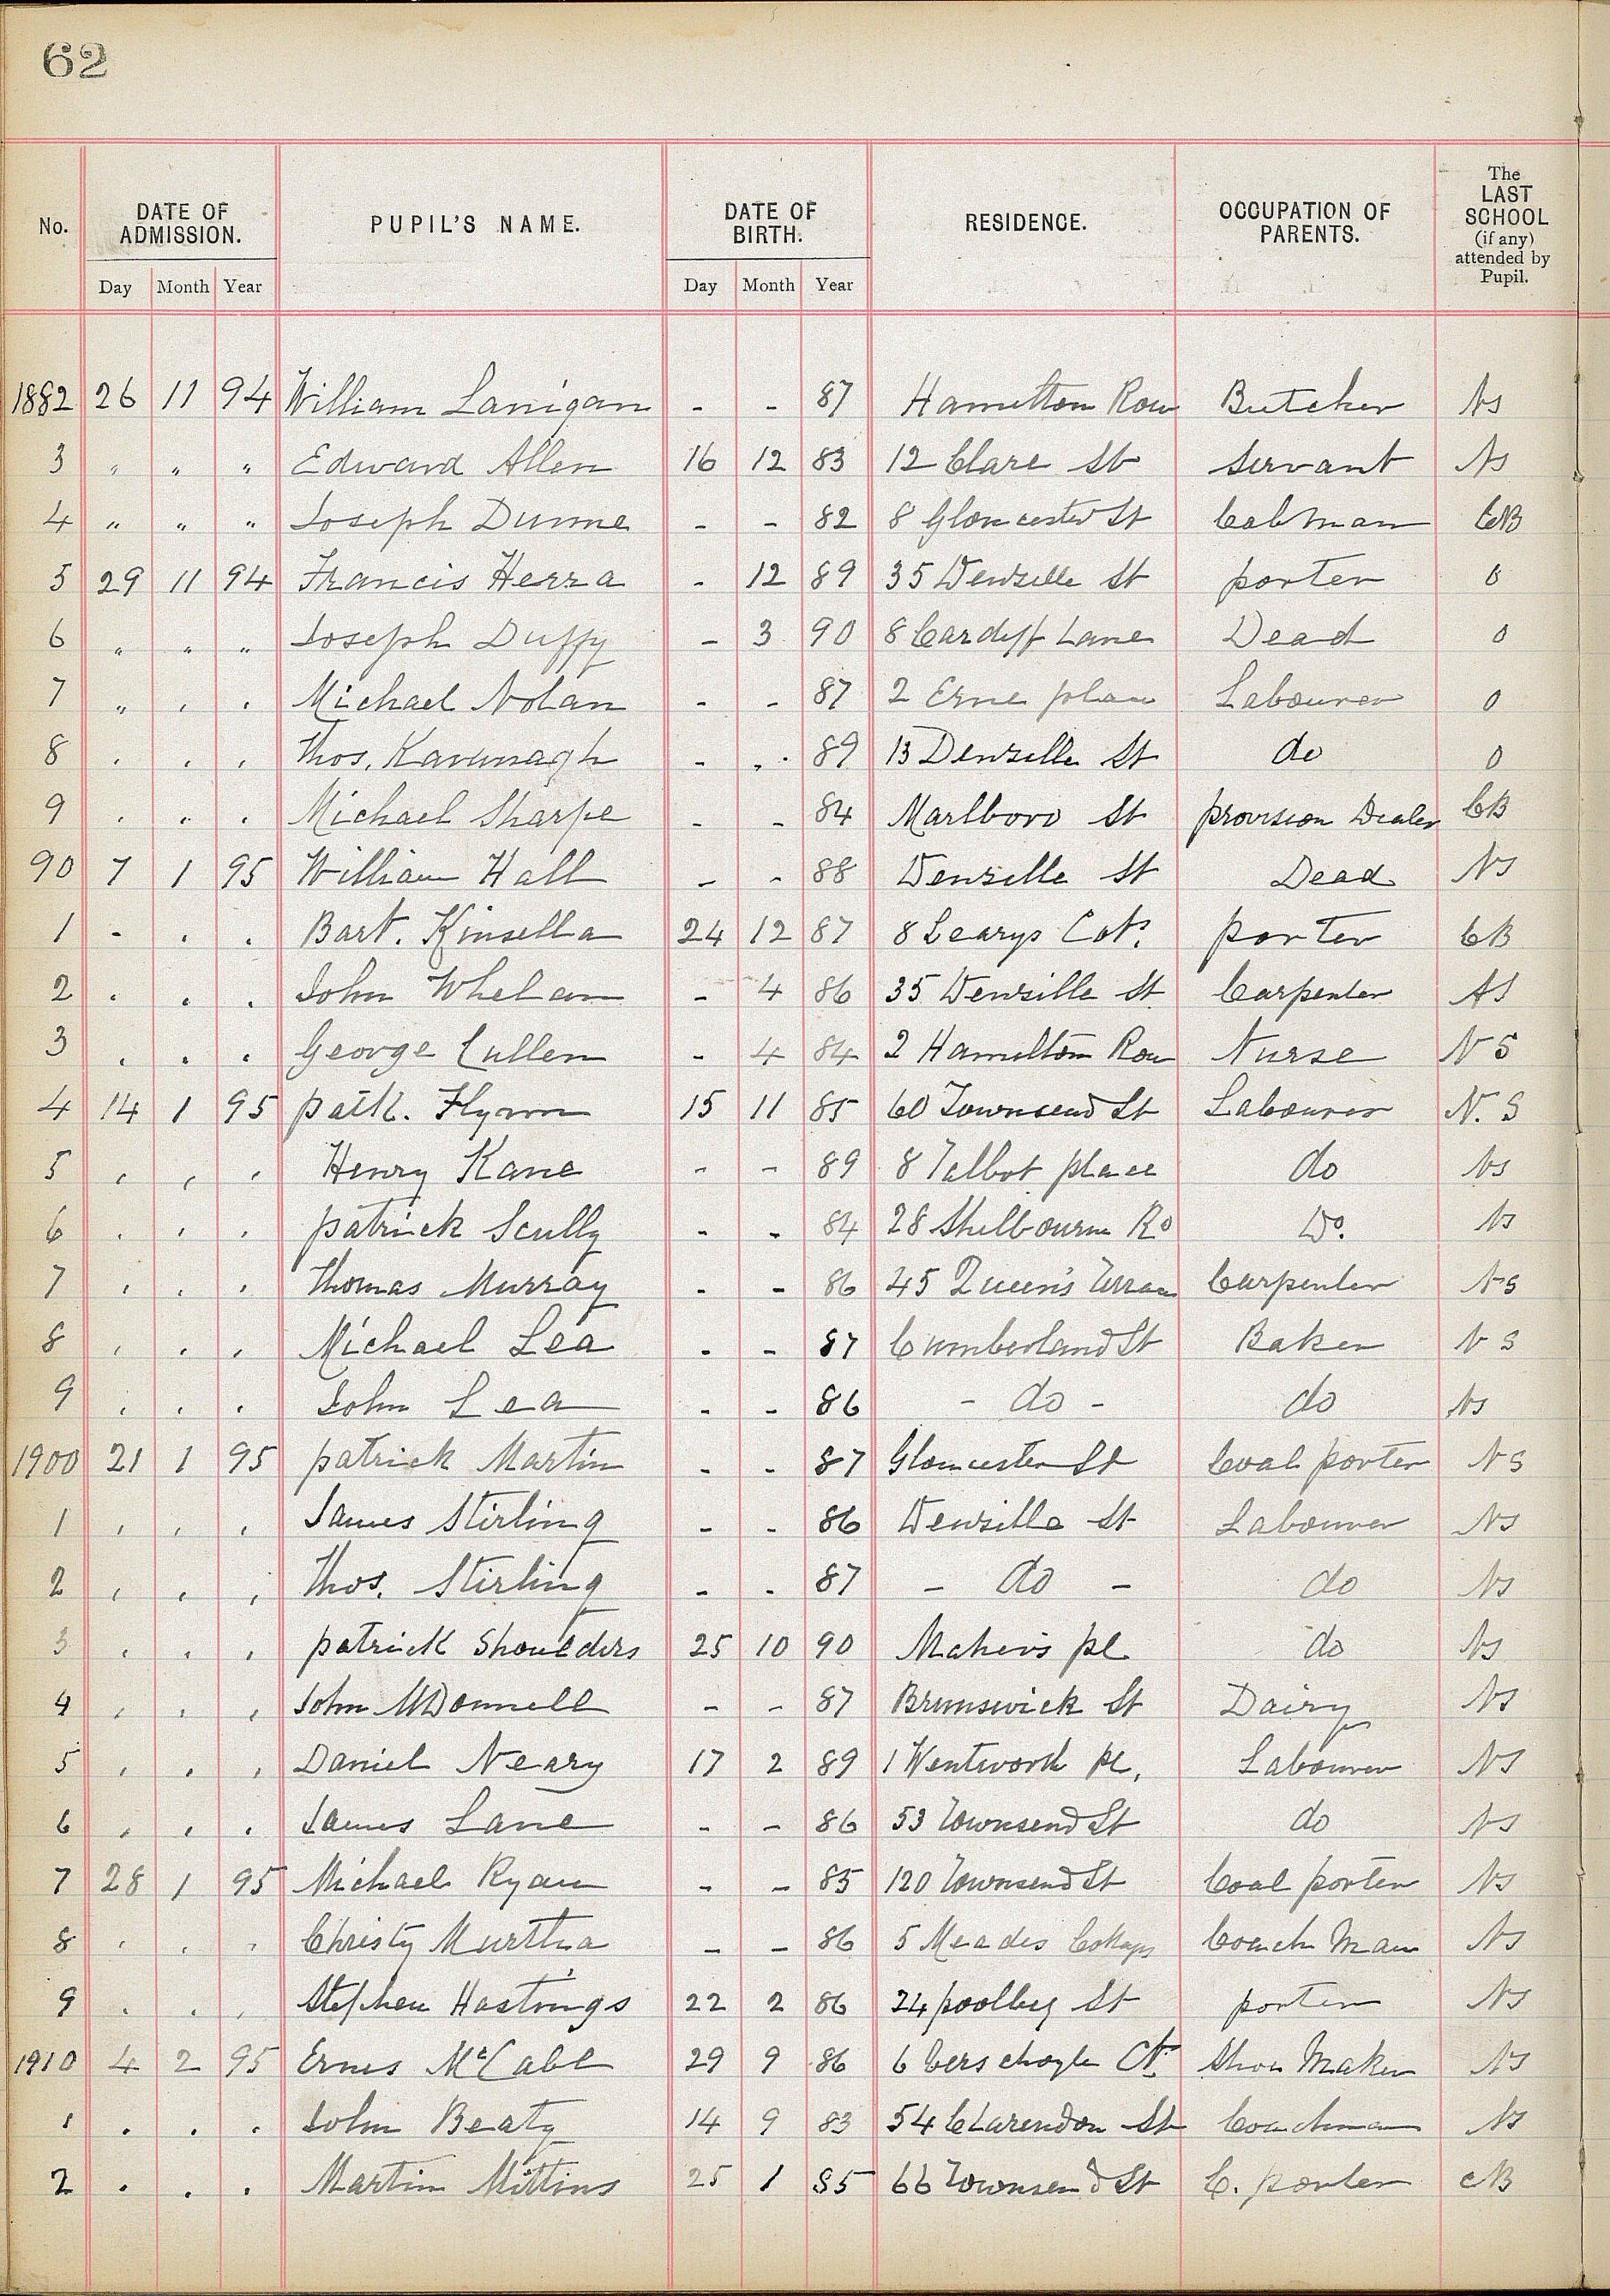 62
No. DATE OF ADMISSION. PUPIL'S NAME. DATE OF BIRTH. RESIDENCE. OCCUPATION OF PARENTS. The LAST SCHOOL (if any) attended by Pupil.
Day Month Year Day Month Year
1882 26 11 94 William Lanigan - - 87 Hamilton Row Butcher NS
3 " " " Edward Allen 16 12 83 12 Clare St Servant NS
4 " " " Joseph Dunne - - 82 8 Gloucester St Cabman CB
5 29 11 94 Francis Herra - 12 89 35 Denzille St porter 0
6 " " " Joseph Duffy - 3 90 8 Cardiff Lane Dead 0
7 " " " Michael Nolan - - 87 2 Erne place Labourer 0
8 " " " Thos. Kavanagh - - 89 13 Denzille St do 0
9 " " " Michael Sharpe - - 84 Marlboro St provision Dealer CB
90 7 1 95 William Hall - - 88 Denzille St Dead NS
1 - " " Bart. Kinsella 24 12 87 8 Learys Cots. porter CB
2 " " " John Whelan - 4 86 35 Denzille St Carpenter AS
3 " " " George Cullen - 4 84 2 Hamilton Row Nurse NS
4 14 1 95 patk. Flynn 15 11 85 60 Townsend St Labourer N.S
5 " " " Henry Kane - - 89 8 Talbot place do NS
6 " " " patrick Scully - - 84 28 Shelbourne Rd Do. NS
7 " " " Thomas Murray - - 86 45 Queen's Terrace Carpenter NS
8 " " " Michael Lea - - 87 Cumberland St Baker NS
9 " " " John Lea - - 86 - do - do NS
1900 21 1 95 patrick Martin - - 87 Gloucester St Coal porter NS
1 " " " James Stirling - - 86 Denzille St Labourer NS
2 " " " Thos. Stirling - - 87 - do - do NS
3 " " " patrick Shoulders 25 10 90 Maher's pl do NS
4 " " " John McDonnell - - 87 Brunswick St Dairy NS
5 " " " Daniel Neary 17 2 89 1 Wentworth pl, Labourer NS
6 " " " James Lane - - 86 53 Townsend St do NS
7 28 1 95 Michael Ryan - - 85 120 Townsend St Coal porter NS
8 " " " Christy Murtha - - 86 5 Meades Cottages Coach Man NS
9 " " " Stephen Hastings 22 2 86 24 poolbeg St porter NS
1910 4 2 95 Ernes McCabe 29 9 86 6 Ct. Shoe Maker NS
1 " " " John Beaty 14 9 83 54 Clarendon St Coachman NS
2 " " " Martin Mittins 25 1 85 66 Townsend St C. porter CB